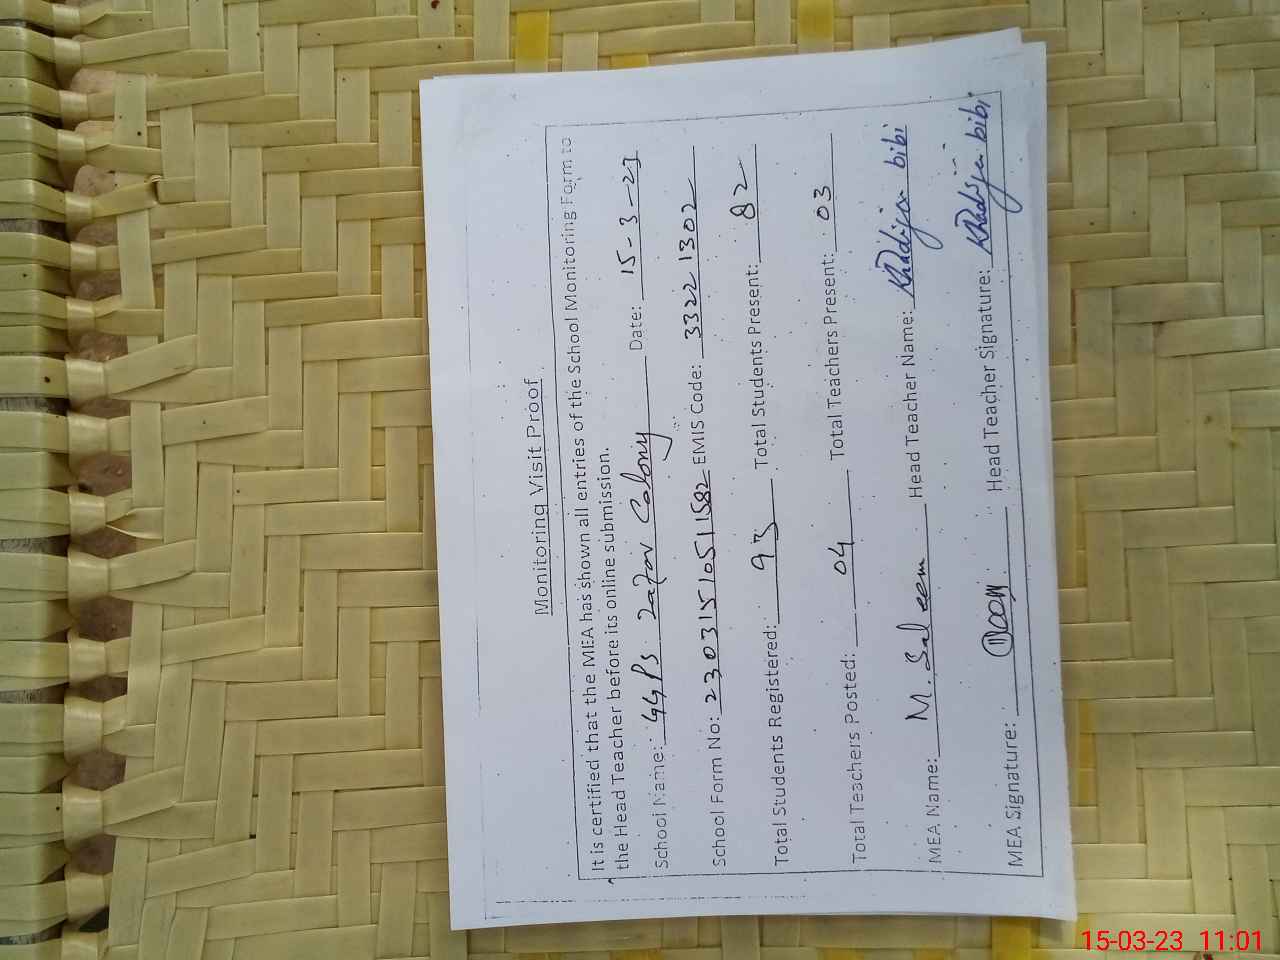 Monitoring Visit Proof
It is certified that the MEA has shown all entries of the School Monitoring Form to
the Head Teacher before its online submission.
School Name: GGPS Zafar Colony Date: 15-3-23
School Form No: 2303151051582 EMIS Code: 33221302
Total Students Registered: 93 Total Students Present: 82
Total Teachers Posted: 04 Total Teachers Present: 03
MEA Name: M. Saleem Head Teacher Name: Khadija bibi
MEA Signature: Head Teacher Signature: Khadija bibi
15-03-23 11:01